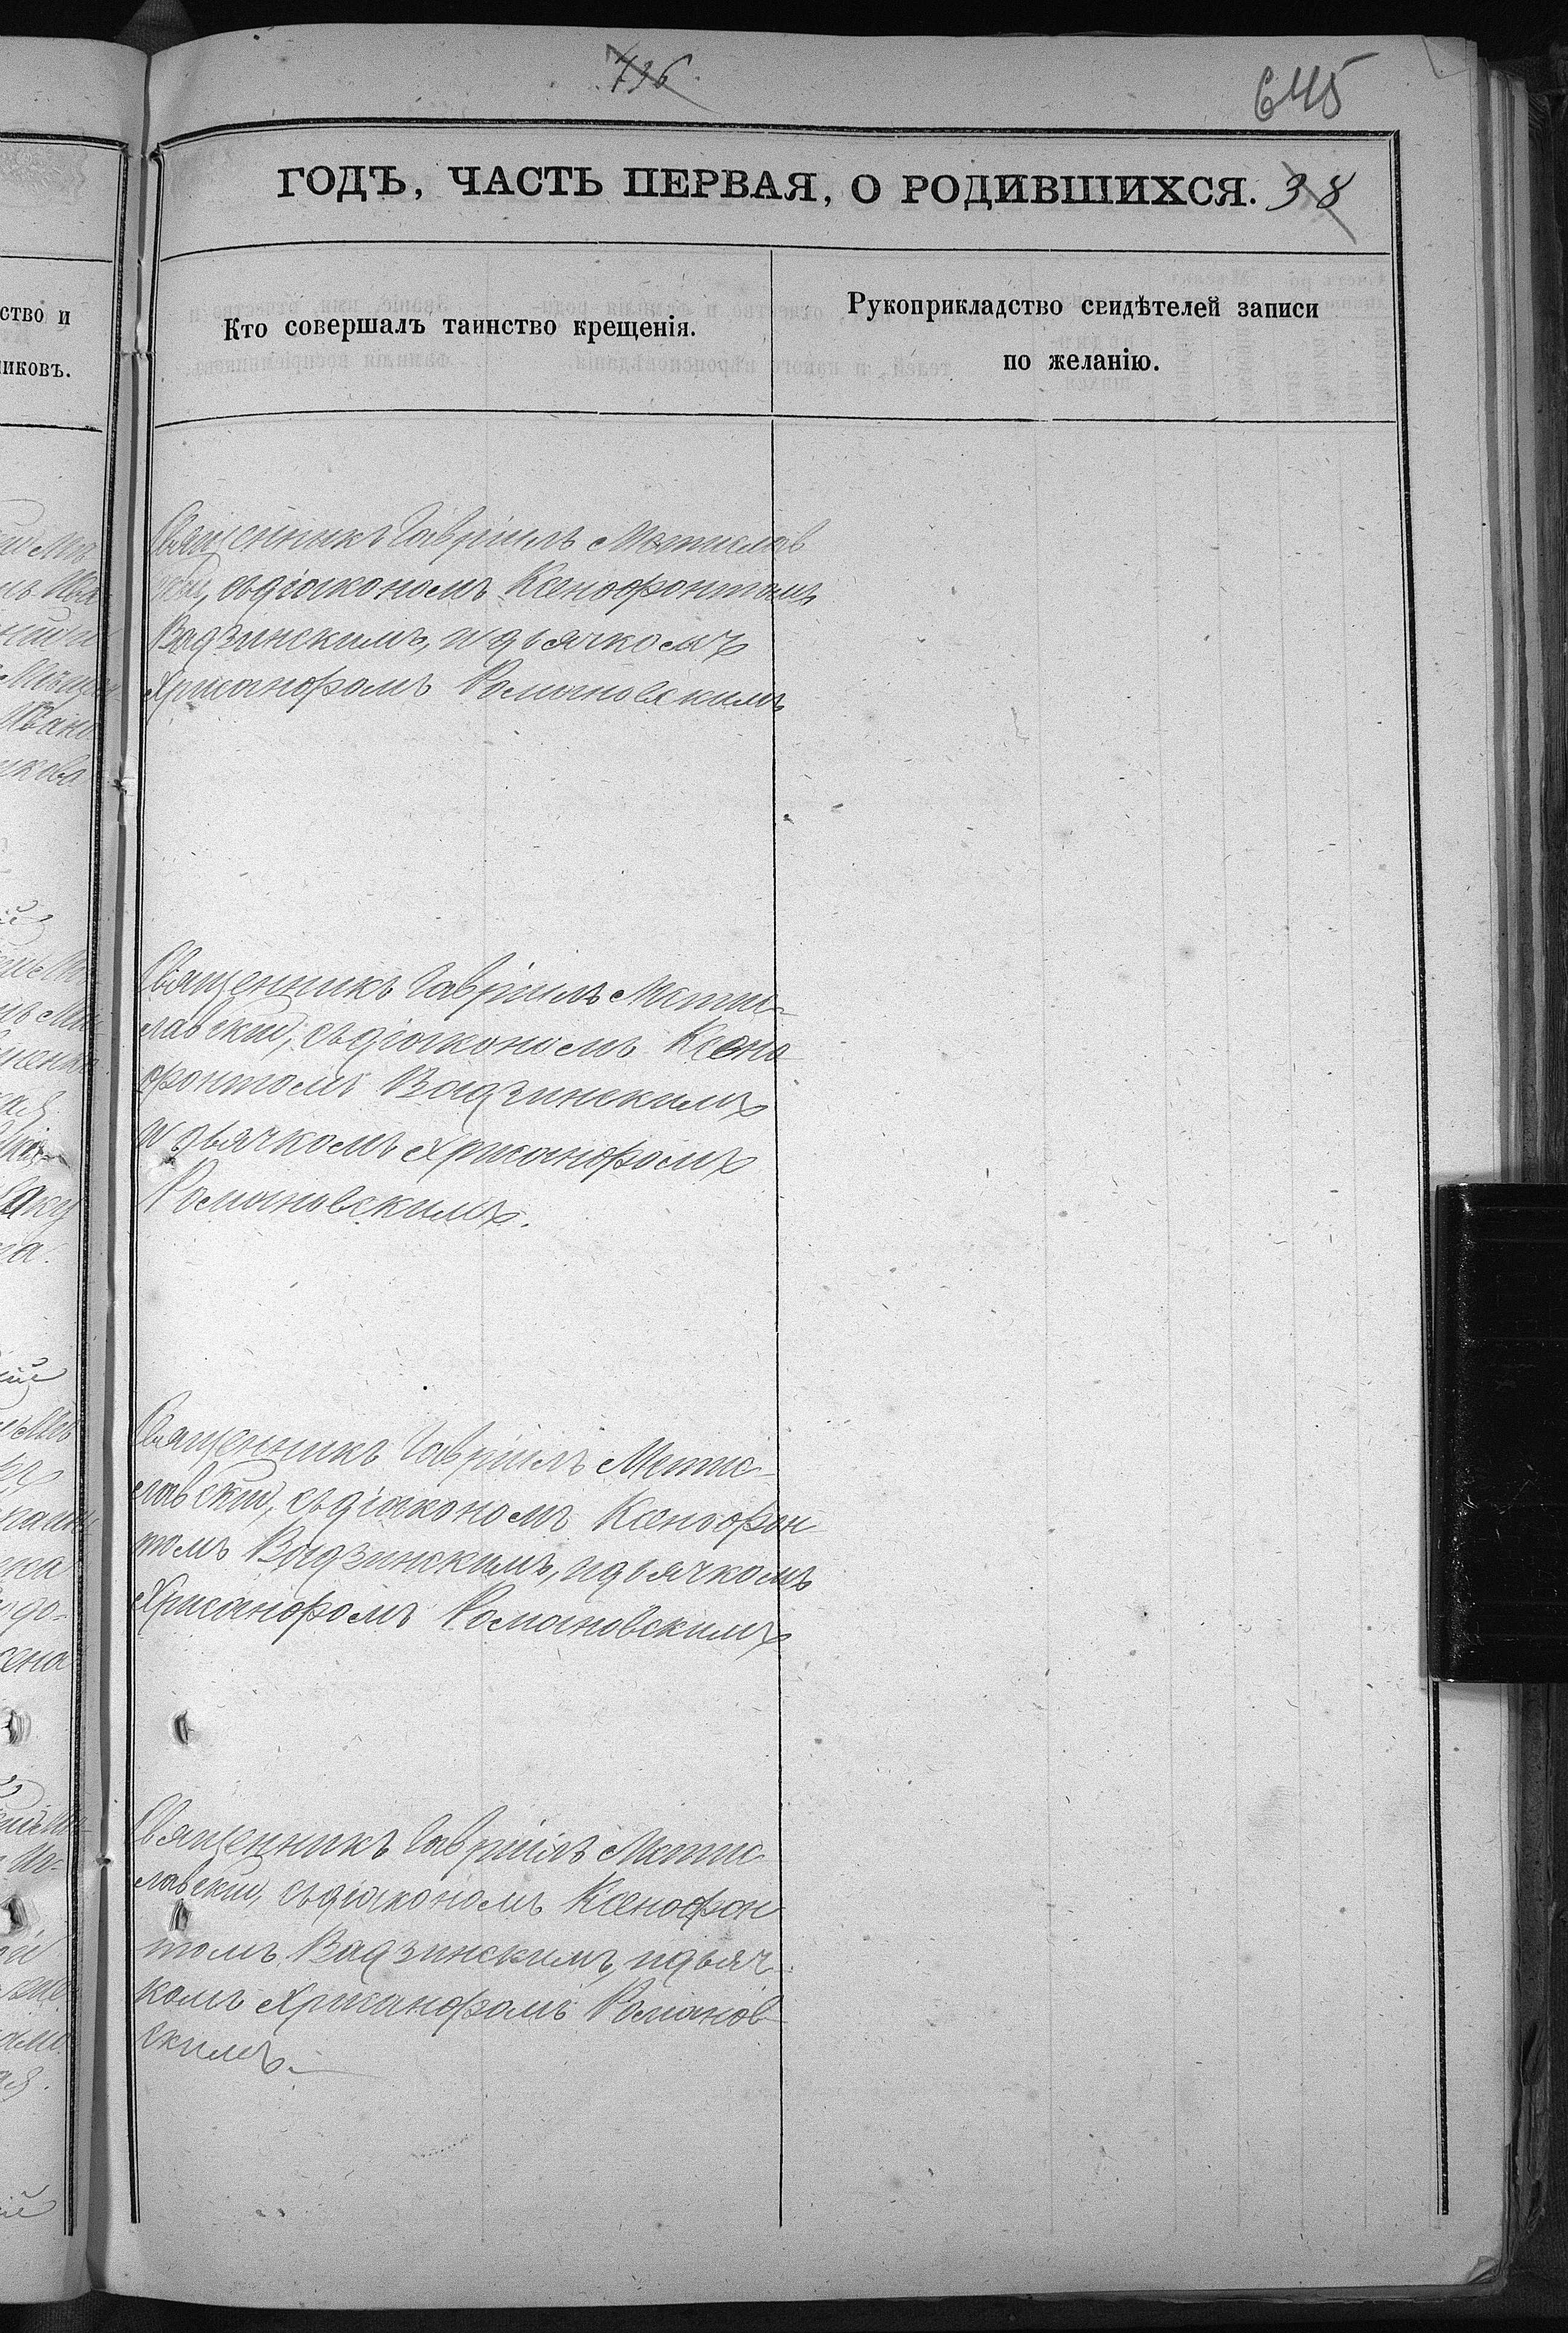 736
645
ГОДЪ, ЧАСТЬ ПЕРВАЯ, О РОДИВШИХСЯ. 38
Кто совершалъ таинство крещенія.
Рукоприкладство свидѣтелей записи
по желанію.
Священникъ Гавріилъ Мстислав
скій, съ діакономъ Ксенофонтомъ
Вадзинскимъ, и дьячкомъ
Хрисанфомъ Романовскимъ
Священникъ Гавріилъ Мсти-
славскій, съ діакономъ Ксено
фонтомъ Вадзинскимъ
и дьячкомъ Хрисанфомъ
Романовскимъ.
Священникъ Гавріилъ Мстис-
лавскій, съ діакономъ Ксенофон
томъ Вадзинскимъ, и дьячкомъ
Хрисанфомъ Романовскимъ
Священникъ Гавріилъ Мстис
лавскій, съ діакономъ Ксенофон
томъ Вадзинскимъ, и дьяч
комъ Хрисанфомъ Романов-
скимъ.